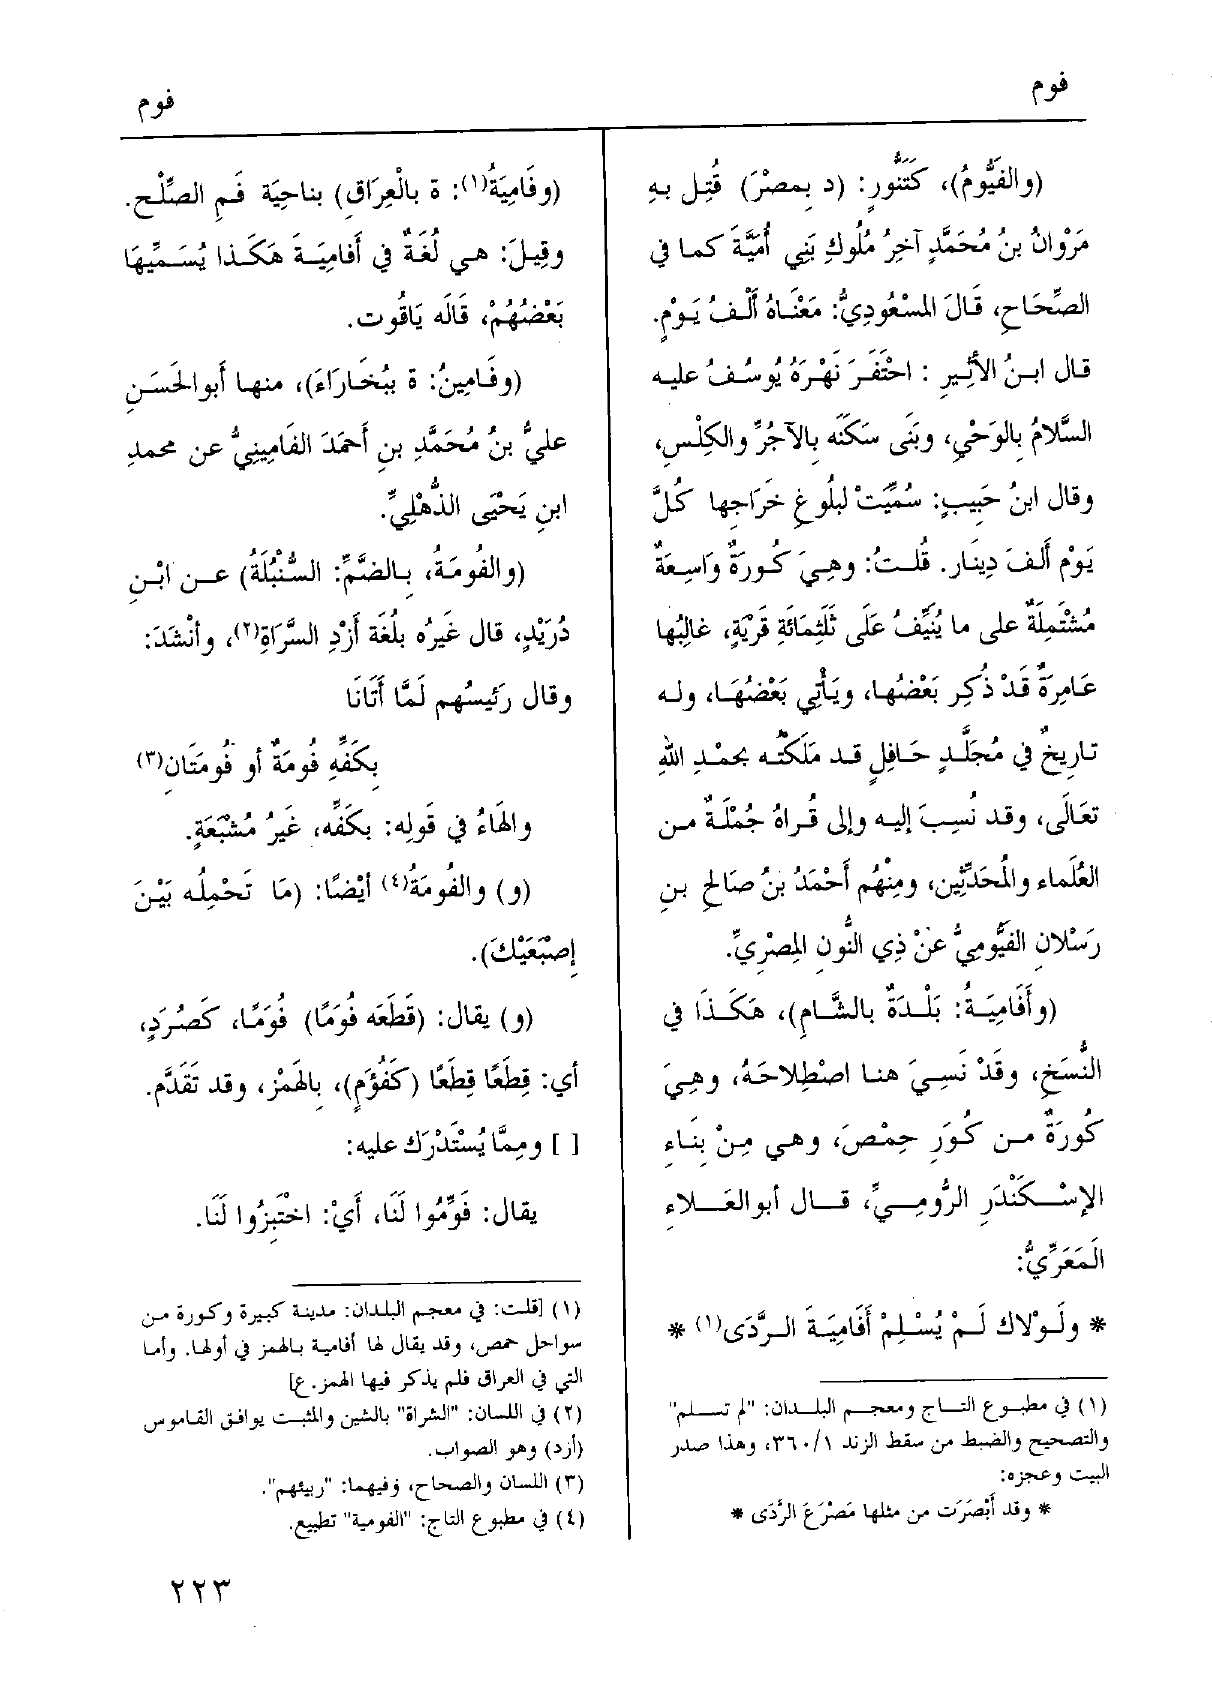 فوم
فوم
(والفَيُّومُ)، كَتَنُّورٍ: (د بِمصْرَ) قُتِل بِهِ
مَرْوَانُ بنُ مُحَمَّدٍ آخِرُ مُلُوكِ بَنِي أُمَيَّةَ كما في
الصِّحَاحِ، قَالَ المَسْعُودِيُّ: مَعْنَاهُ أَلْفُ يَوْمٍ.
قال ابنُ الأَثِيرِ : احْتَفَرَ نَهْرَهُ يُوسُفُ عليه
السَّلامُ بِالوَحْيِ، وبَنَى سَكنَه بِالآجُرِّ والكِلْسِ،
وقال ابنُ حَبِيبٍ: سُمِّيَتْ لبلُوغِ خَرَاجِها كُلَّ
يَوْم أَلفَ دِينَار. قُلتُ: وهِيَ كُورَةٌ وَاسِعَةٌ
مُشْتَمِلَةٌ على ما يُنَيِّفُ عَلَى ثَلَثِمائَةِ قَرْيَةٍ، غالِبُها
عَامِرَةٌ قَدْ ذُكِر بَعْضُها، ويَأْتِي بَعْضُهَا، وله
تاريخٌ في مُجَلَّدٍ حَافِلٍ قد مَلَكْتُه بحَمْدِ اللهِ
تعَالَى، وقد نُسِبَ إليه وإلى قُراهُ جُمْلَةٌ من
العُلَماء والمُحَدِّثِين، ومِنْهُم أَحْمَدُ بنُ صَالِحِ بنِ
رَسْلانِ الفَيُّومِيُّ عَنْ ذِي النُّونِ المِصْرِيِّ.
(وأَفَامِيَةُ: بَلْدَةٌ بالشَّامِ)، هَكَذَا في
النُّسَخِ، وقَدْ نَسِيَ هنا اصْطِلاحَهُ، وهِيَ
كُورَةٌ من كُوَرِ حِمْصَ، وهي مِنْ بِنَاءِ
الإسْكَنْدَرِ الرُّومِيِّ، قال أبو العَلاءِ
المَعَرِّيُّ:
* ولَوْلاك لَمْ يُسْلِمْ أَفَامِيَةَ الرَّدَى(١) *
(١) في مطبوع التاج ومعجم البلدان: "لم تسلم"
والتصحيح والضبط من سقط الزند ٣٦٠/١، وهذا صدر
البيت وعجزه:
* وقد أَبْصَرَت من مثلها مَصْرَعَ الرَّدَى *
(وفَامِيَةُ(١): ة بالْعِرَاقِ) بناحِيَة فَمِ الصِّلْح.
وقِيلَ: هي لُغَةٌ في أَفامِيَةَ هَكَذا يُسَمِّيها
بَعْضُهُمْ، قَالَه يَاقُوت.
(وفَامِينُ: ة بِبُخَارَاءَ)، منها أبوالحَسَنِ
عليُّ بنُ مُحَمَّدِ بنِ أَحمَدَ الفَامِينِيُّ عن محمدِ
ابنِ يَحْيَى الذُّهْلِيِّ.
(والفُومَةُ، بالضَّمِّ: السُّنْبُلَةُ) عن ابْنِ
دُرَيْدٍ، قال غَيرُه بلُغَة أَزْدِ السَّرَاةِ(٢)، وأنْشَدَ:
وقال رَئِيسُهم لَمَّا أَتَانَا
بِكَفِّهِ فُومَةٌ أو فُومَتَانِ(٣)
والهَاءُ في قَولِه: بِكَفِّه، غَيرُ مُشْبَعَةٍ.
(و) والفُومَةُ(٤) أيْضًا: (مَا تَحْمِلُه بَيْنَ
إصْبَعَيْكَ).
(و) يقال: (قَطَعَه فُوَمًا) فُوَمًا، كَصُرَدٍ،
أي: قِطَعًا قِطَعًا (كَفُؤَمٍ)، بِالهَمْزِ، وقد تَقَدَّم.
[ ] ومِمَّا يُسْتَدْرَك عليه:
يقال: فَوِّمُوا لَنَا، أَيْ: اخْتَبِزُوا لَنَا.
(١) [قلت: في معجم البلدان: مدينة كبيرة وكورة من
سواحل حمص، وقد يقال لها أفامية بالهمز في أولها. وأما
التي في العراق فلم يذكر فيها الهمز. ع]
(٢) في اللسان: "الشراة" بالشين والمثبت يوافق القاموس
(أزد) وهو الصواب.
(٣) اللسان والصحاح، وفيهما: "ربيئهم".
(٤) في مطبوع التاج: "الفومية" تطبيع.
٢٢٣